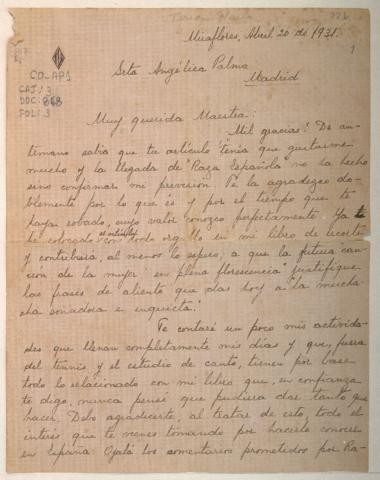 CO-AP1
CAJ: 3
DOC: 868
FOL: 3
1
Miraflores, Abril 20 de 1931.
Srta Angélica Palma
Madrid
Muy querida Maestra:
Mil gracias! De an-
temano sabía que tu artículo tenía que gustarme
mucho y la llegada de "Raza Española" no ha hecho
sino confirmar mi prevision. Te la agradezco do-
blemente por lo que és y por el tiempo que te
haya robado, cuyo valor conozco perfectamente. Ya
he colocado con todo orgullo en mi libro de recortes
y contribuirá, al menos lo espero, a que la futura "can-
cion de la mujer en plena florescencia" justifique
las frases de aliento que das hoy a "la mucha-
cha soñadora e inquieta."
Te contaré un poco mis activida-
des que llenan completamente mis días y que, fuera
del tennis y el estudio de canto, tienen por base
todo lo relacionado con mi libro que, en confianza
te digo, nunca pensé que pudiera dar tanto que
hacer. Debo agradecerte, al tratar de esto, todo el
interés que te vienes tomando por hacerlo conocer
en España. Ojalá los comentarios prometidos por Ra-